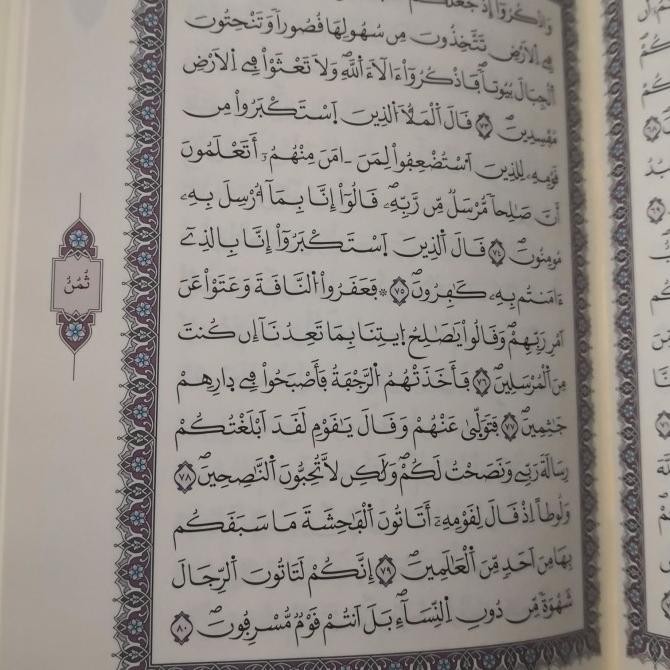 وَاذْكُرُوٓاْ إِذْ جَعَلَكُمْ
فِے اِلَارْضِ تَتَّخِذُونَ مِن سُهُولِهَا قُصُوراٗ وَتَنْحِتُونَ
اَ۬لْجِبَالَ بُيُوتاٗۖ فَاذْكُرُوٓاْ ءَالَآءَ اَ۬للَّهِ وَلَا تَعْثَوْاْ فِے اِلَارْضِ
مُفْسِدِينَۖ ٧٣ قَالَ اَ۬لْمَلَأُ اُ۬لذِينَ اَ۪سْتَكْبَرُواْ مِن
قَوْمِهِۦ لِلذِينَ اَ۟سْتُضْعِفُواْ لِمَنَ اٰمَنَ مِنْهُمُۥٓ أَتَعْلَمُونَ
أَنَّ صَٰلِحاٗ مُّرْسَلٞ مِّن رَّبِّهِۦۖ قَالُوٓاْ إِنَّا بِمَآ أُرْسِلَ بِهِۦ
مُومِنُونَۖ ٧٤ قَالَ اَ۬لذِينَ اَ۪سْتَكْبَرُوٓاْ إِنَّا بِالذِےٓ
ءَامَنتُم بِهِۦ كَٰفِرُونَۖ ٧٥ ۞ فَعَقَرُواْ اُ۬لنَّاقَةَ وَعَتَوْاْ عَنَ
اَمْرِ رَبِّهِمْۖ وَقَالُواْ يَٰصَٰلِحُ اُ۪يتِنَا بِمَا تَعِدُنَآ إِن كُنتَ
مِنَ اَ۬لْمُرْسَلِينَۖ ٧٦ فَأَخَذَتْهُمُ اُ۬لرَّجْفَةُ فَأَصْبَحُواْ فِے دِارِهِمْ
جَٰثِمِينَۖ ٧٧ فَتَوَلّ۪يٰ عَنْهُمْ وَقَالَ يَٰقَوْمِ لَقَدَ اَبْلَغْتُكُمْ
رِسَالَةَ رَبِّے وَنَصَحْتُ لَكُمْۖ وَلَٰكِن لَّا تُحِبُّونَ اَ۬لنَّٰصِحِينَۖ ٧٨
وَلُوطاً اِذْ قَالَ لِقَوْمِهِۦٓ أَتَاتُونَ اَ۬لْفَٰحِشَةَ مَا سَبَقَكُم
بِهَا مِنَ اَحَدٖ مِّنَ اَ۬لْعَٰلَمِينَۖ ٧٩ إِنَّكُمْ لَتَاتُونَ اَ۬لرِّجَالَ
شَهْوَةٗ مِّن دُونِ اِ۬لنِّسَآءِۖ بَلَ اَنتُمْ قَوْمٞ مُّسْرِفُونَۖ ٨٠
ثُمُنُ